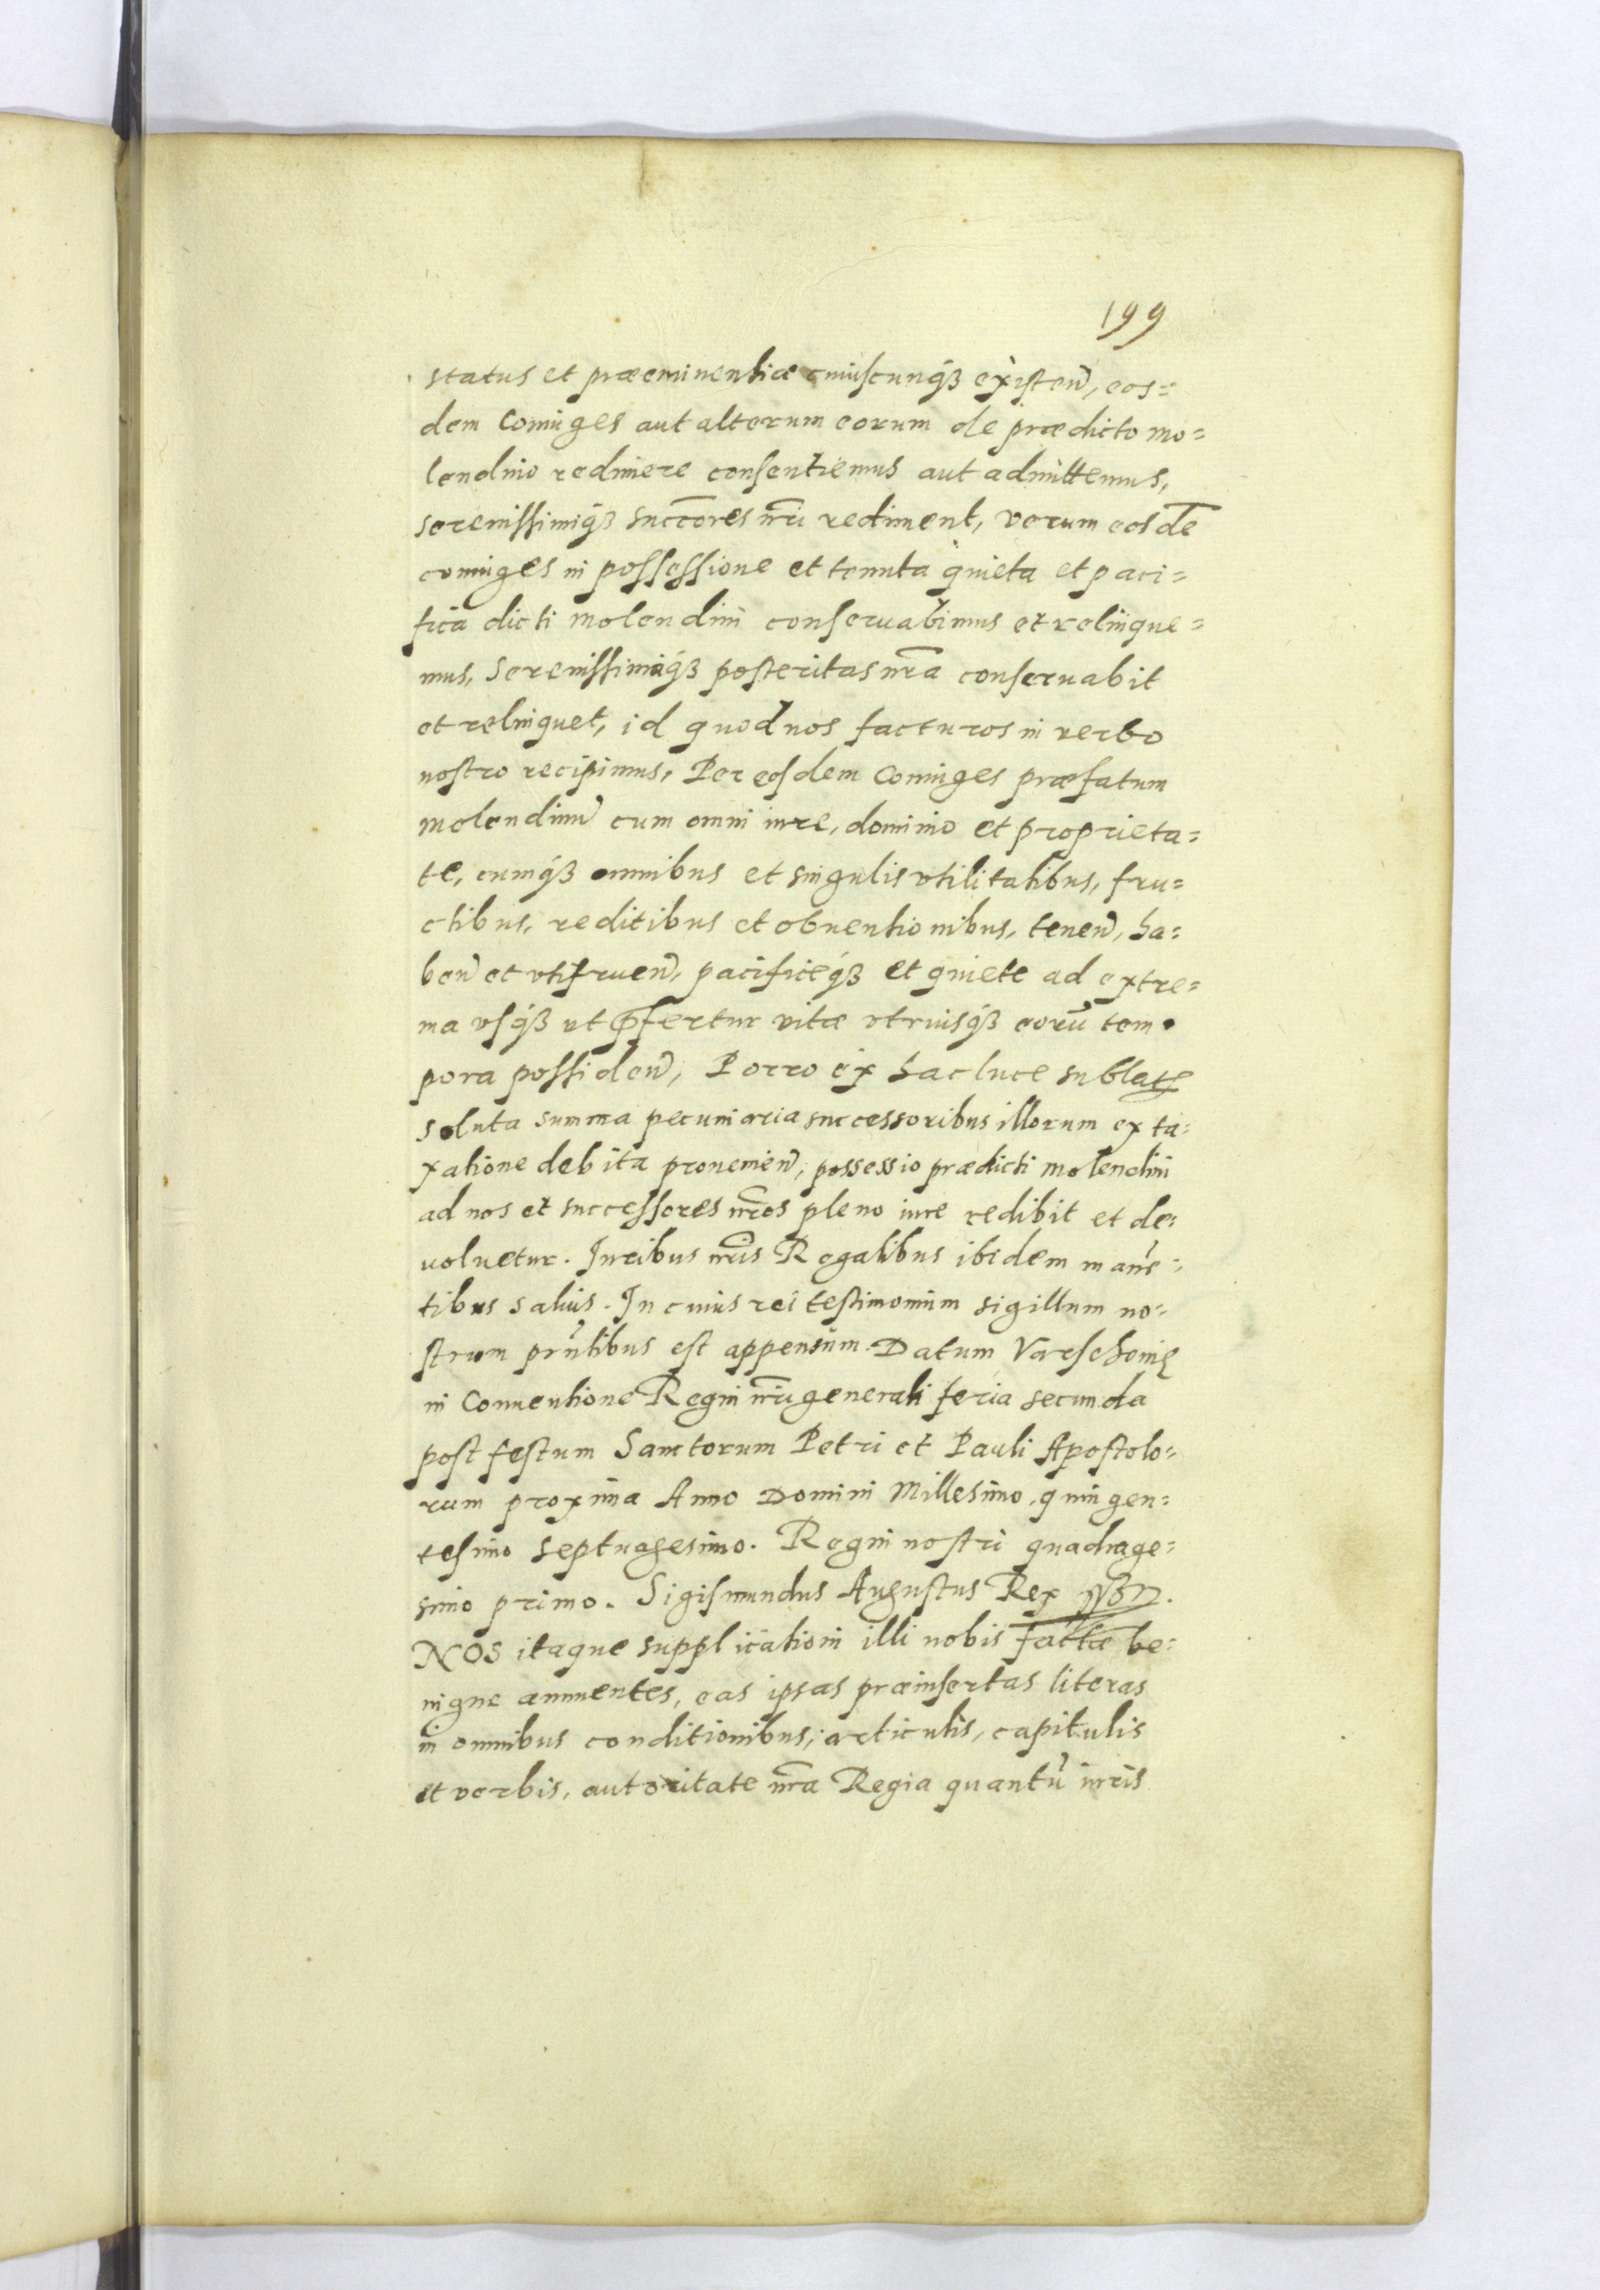 199
status et præeminentiæ cuiuscunq́ꝫ existen̄, eos=
dem Coniuges aut alterum eorum de prædicto mo=
lendino redimere consentiemus aut admittemus,
serenissimiq́ꝫ succ̄ores nr̄i rediment, verum eosdē
coniuges in possessione et tenuta quieta et paci=
fica dicti molendini conseruabimus et relinque=
mus, Serenissimaq́ꝫ posteritas nr̄a conseruabit
et relinquet, id quod nos facturos in verbo
nostro recipimus, Per eosdem Coniuges præfatum
molendinū cum omni iure, dominio et proprieta=
te, cumq́ꝫ omnibus et singulis vtilitatibus, fru=
ctibus, reditibus et obuentionibus, tenen̄, ha=
ben̄ et vtifruen̄, pacificeq́ꝫ et quiete ad extre=
ma vsq́ꝫ vt p̄fertur vitæ vtriusq́ꝫ eorū tem
pora possiden̄, Porro ex hac luce sublatę
soluta summa pecuniaria successoribus illorum ex ta=
xatione debita prouenien̄, possessio prædicti molendini
ad nos et successores nr̄os pleno iure redibit et de=
uoluetur. Iuribus nr̄is Regalibus ibidem manē=
tibus saluis. In cuius rei testimonium sigillum no=
strum prn̄tibus est appensum. Datum Varschouię
in Conuentione Regni nr̄i generali feria secunda
post festum Sanctorum Petri et Pauli Apostolo=
rum proxima Anno Domini Millesimo, quingen=
tesimo septuagesimo. Regni nostri quadrage=
simo primo. Sigismundus Augustus Rex
NOS itaque supplicationi illi nobis factæ be=
nigne annuentes, eas ipsas præinsertas literas
in omnibus conditionibus, articulis, capitulis
et verbis, autoritate nr̄a Regia quantū iuris